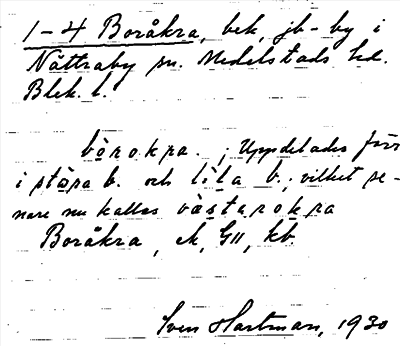 1-4 Boråkra, bek, jb-by i
Nättraby sn. Medelstads hd.
Blek. l.
bòrokra. ; Uppdelades förr
i stòra b. och lìla b.; vilket se-
nare nu kallas västerokra
Boråkra, ek, G11, kb
Sven Hartman, 1930